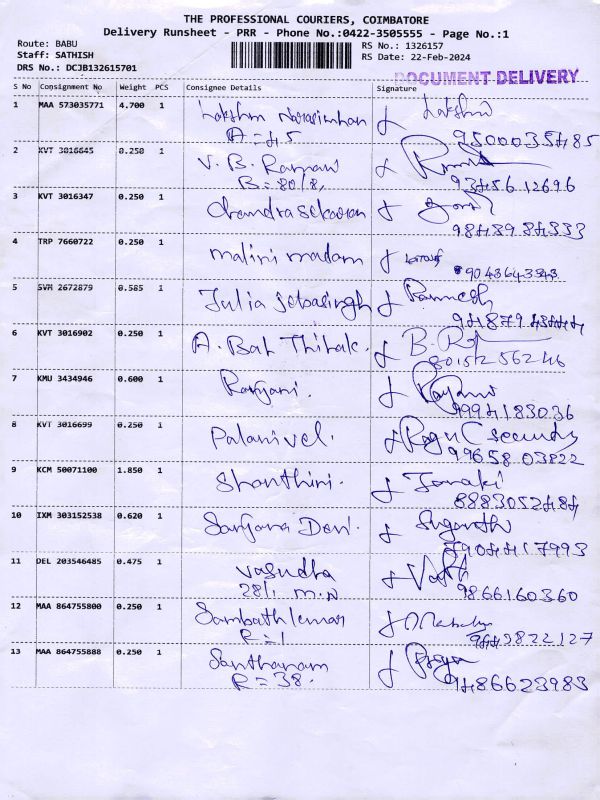 THE PROFESSIONAL COURIERS, COIMBATORE
Delivery Runsheet - PRR - Phone No.:0422-3505555 - Page No.:1
Route: BABU
Staff: SATHISH
DRS No.: DCJB132615701
RS No.: 1326157
RS Date: 22-Feb-2024
DOCUMENT DELIVERY
S No Consignment No Weight PCS Consignee Details Signature
1 MAA 573035771 4.700 1 Lakshmi Narasimhan Lakshmi
A = 45 9500035485
2 KVT 3016645 0.250 1 V. B. Raman
B = 80/8, 9345612696
3 KVT 3016347 0.250 1 Chandrasekaran
9843984333
4 TRP 7660722 0.250 1 malini madam
9043643343
5 SVM 2672879 0.585 1 Julia Jebasingh Ramesh
6 KVT 3016902 0.250 1 A. Bal Thilak.
8015256246
7 KMU 3434946 0.600 1 Ranjani.
9994183036
8 KVT 3016699 0.250 1 Palanivel.
99658 03822
9 KCM 50071100 1.850 1 Shanthini. Janaki
8883052484
10 IXM 303152538 0.620 1 Sanjana Devi. Suganthi
7904417993
11 DEL 203546485 0.475 1 Vasudha
28/1 m.n 9866160360
12 MAA 864755800 0.250 1 Sambathkumar
R = 1 9443822127
13 MAA 864755888 0.250 1 Santhanam
R = 38. 9486623983